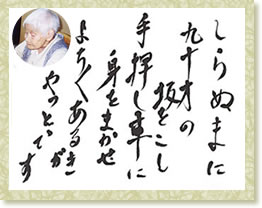 しらぬまに
九十才の
坂をこし
手押し車に
身をまかせ
よちよちあるきが
やっとです